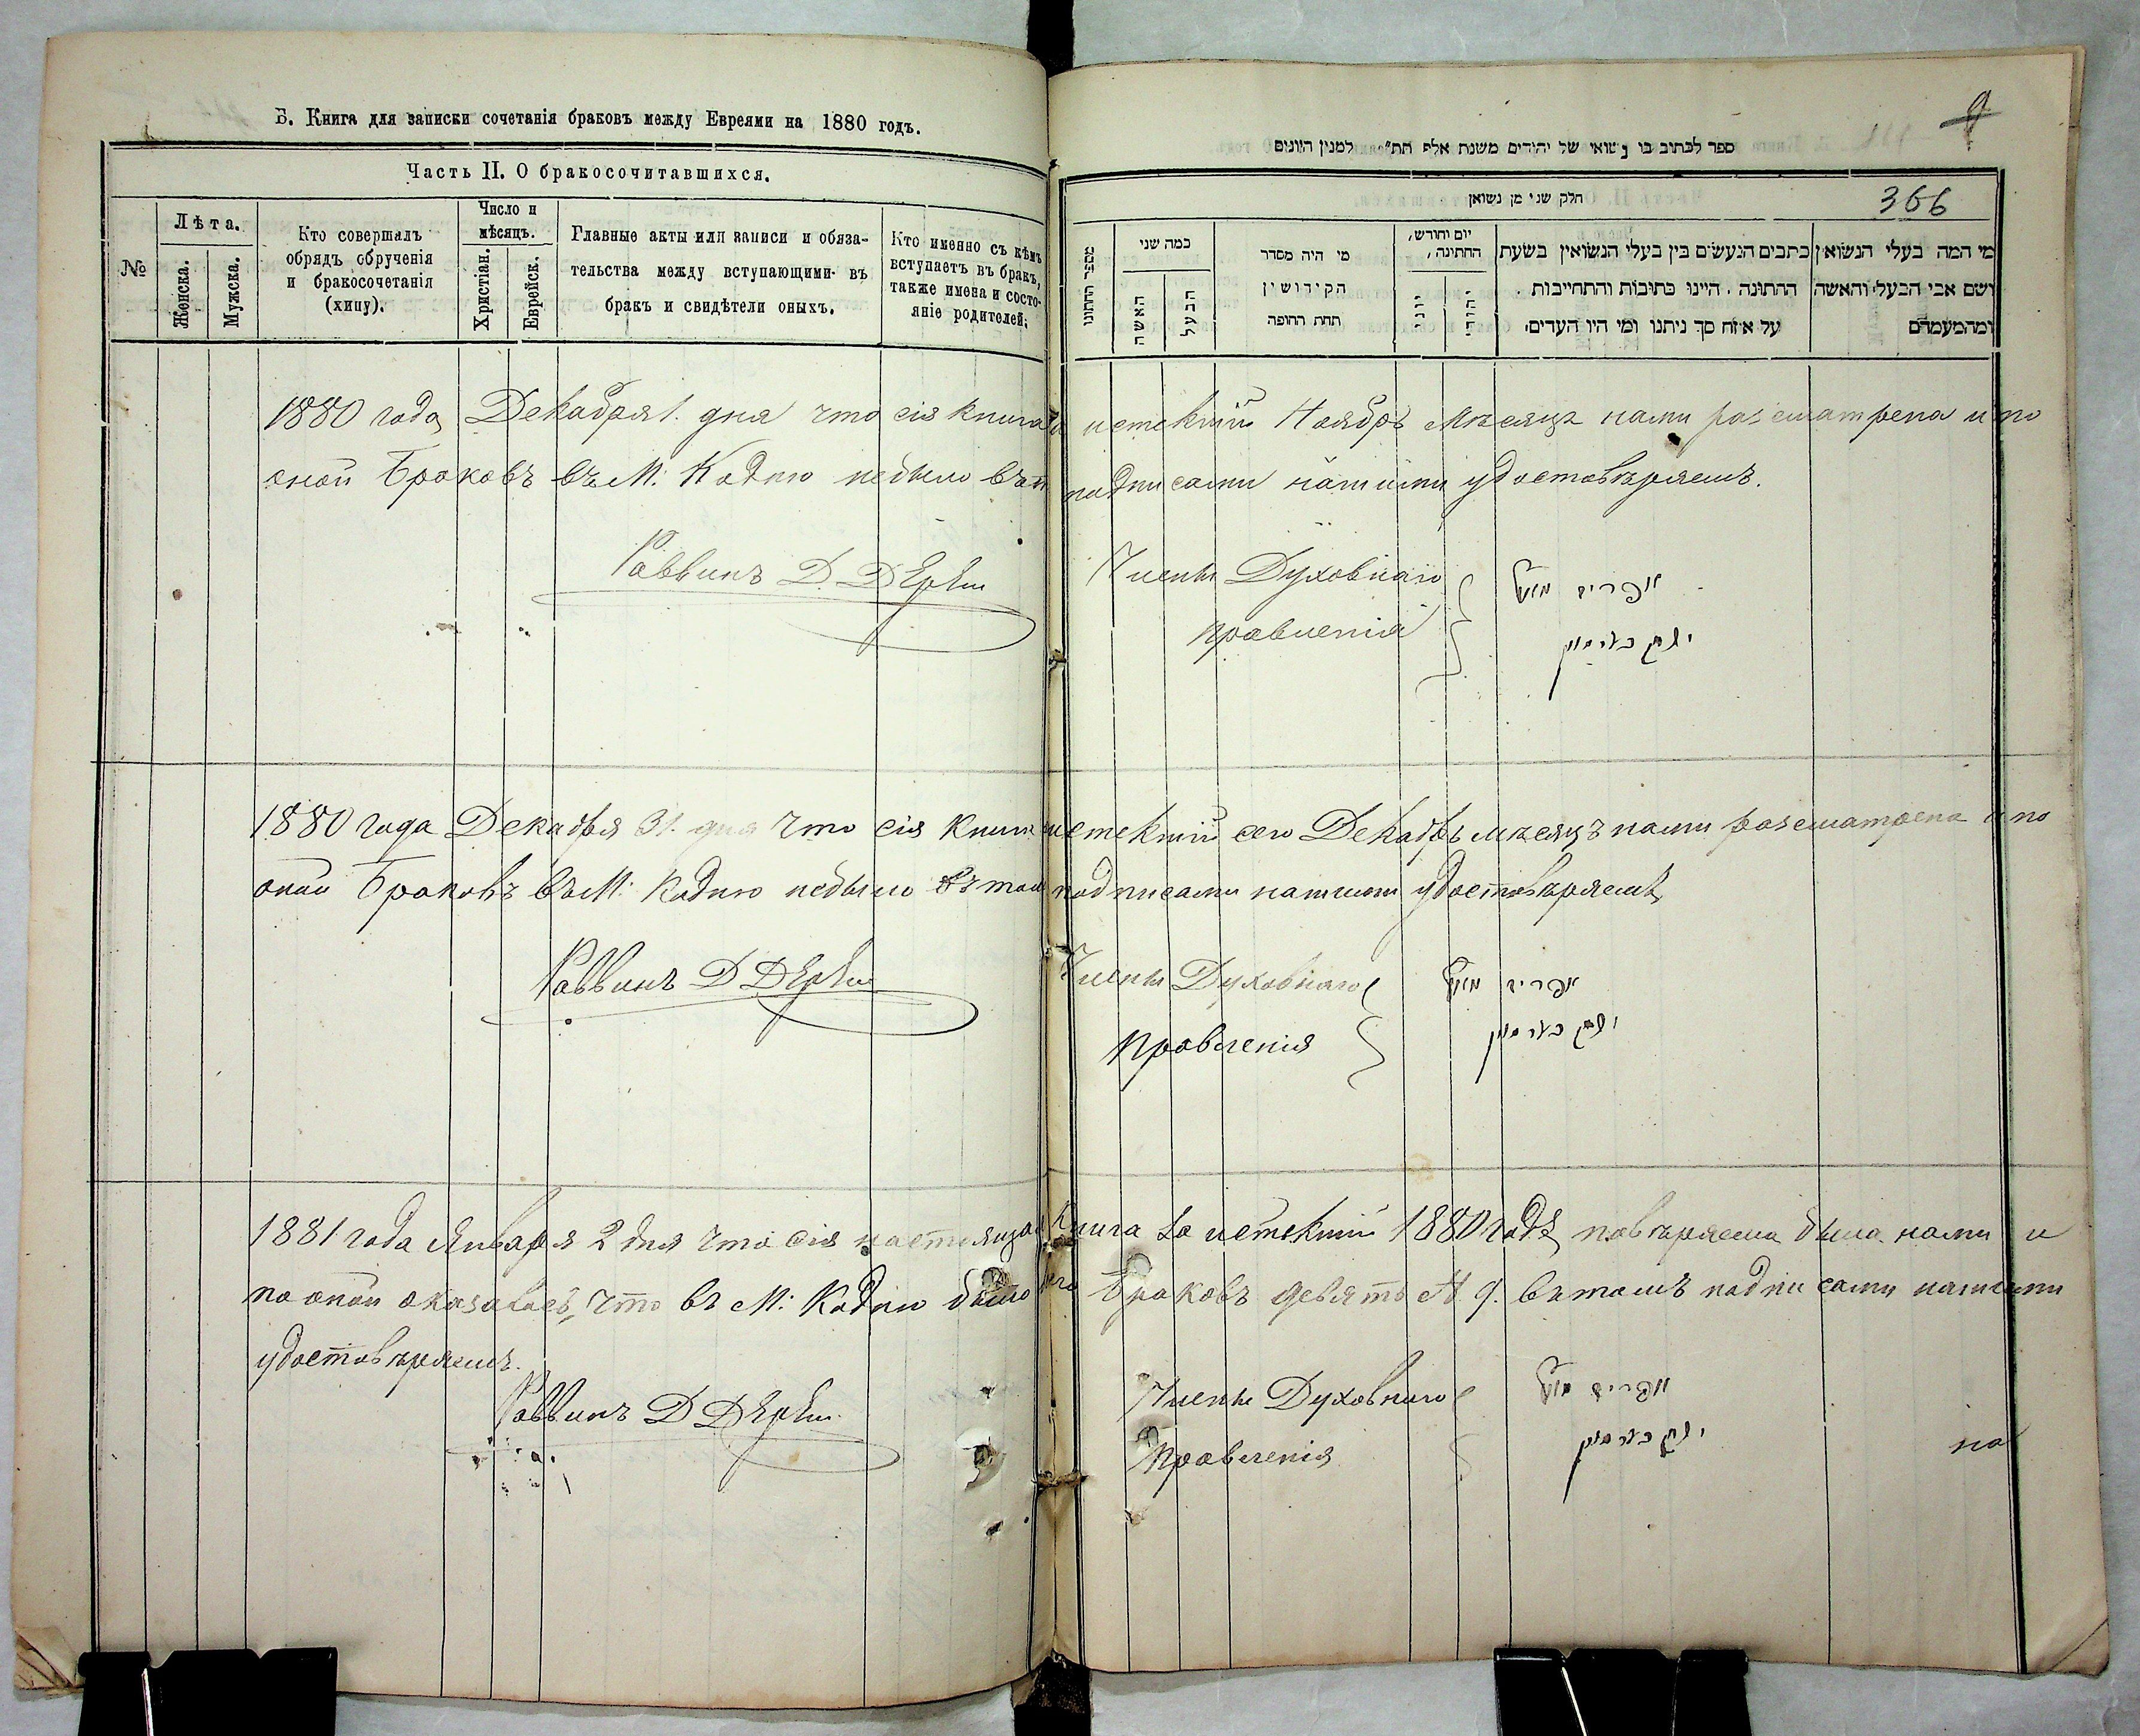 Б. Книга для записки сочетанія браковъ между Евреями на 1880 годъ.
Часть II. О бракосочитавшихся.
№
Лѣта.
Женска.
Мужска.
Кто совершалъ
обрядъ обрученія
и бракосочетанія
(хипу).
Число и
мѣсяцъ.
Христіан.
Еврейск.
Главные акты или записи и обяза-
тельства между вступающими въ
бракъ и свидѣтели оныхъ.
Кто именно съ кѣмъ
вступаетъ въ бракъ,
также имена и состо-
яніе родителей;
9
ספר לכתוב בו נשואי של יהודים משנת אלף תת" למנין היונים
חלק שני מן נשואן
366
מספר החתונו
כמה שני
האשה
הבעל
מי היה מסדר
הקידושין
תחת החופה
יום וחורש,
החתונה,
יוני
יהודי
כתבים הנעשים בין בעלי הנשואין בשעת
החתונה. היינו כתובות והתחייבות.
על איזה סך ניתנו ומי היו העדים,
מי המה בעלי הנשואין
ושם אבי הבעל והאשה
ומהמעמדם
1880 года Декабря 1. дня что сія книга за истекшій Ноябрь мѣсяцъ нами разсматрена и по
оной Браковъ въ М: Кадню небыло въ подписами нашими удостовѣряемъ.
Раввинъ Д.
Члены Духовнаго
правленія
1880 года Декабря 31. дня что сія книга истекшій сего Декабрь мѣсяцъ нами разсматрена и по
оной Браковъ въ М: Кадню небыло въ том подписами нашими удостовѣряемъ
Раввинъ Д
Члены Духовнаго
правленія
1881 года Января 2 дня что сія настоящая Книга за истекшій 1880 годъ повѣряема была нами и
по оной оказалось, что въ М: Кадню было Браковъ девять 9. въ томъ подписами нашими
удостовѣряемъ.
Раввинъ Д
Члены Духовнаго
правленія
на